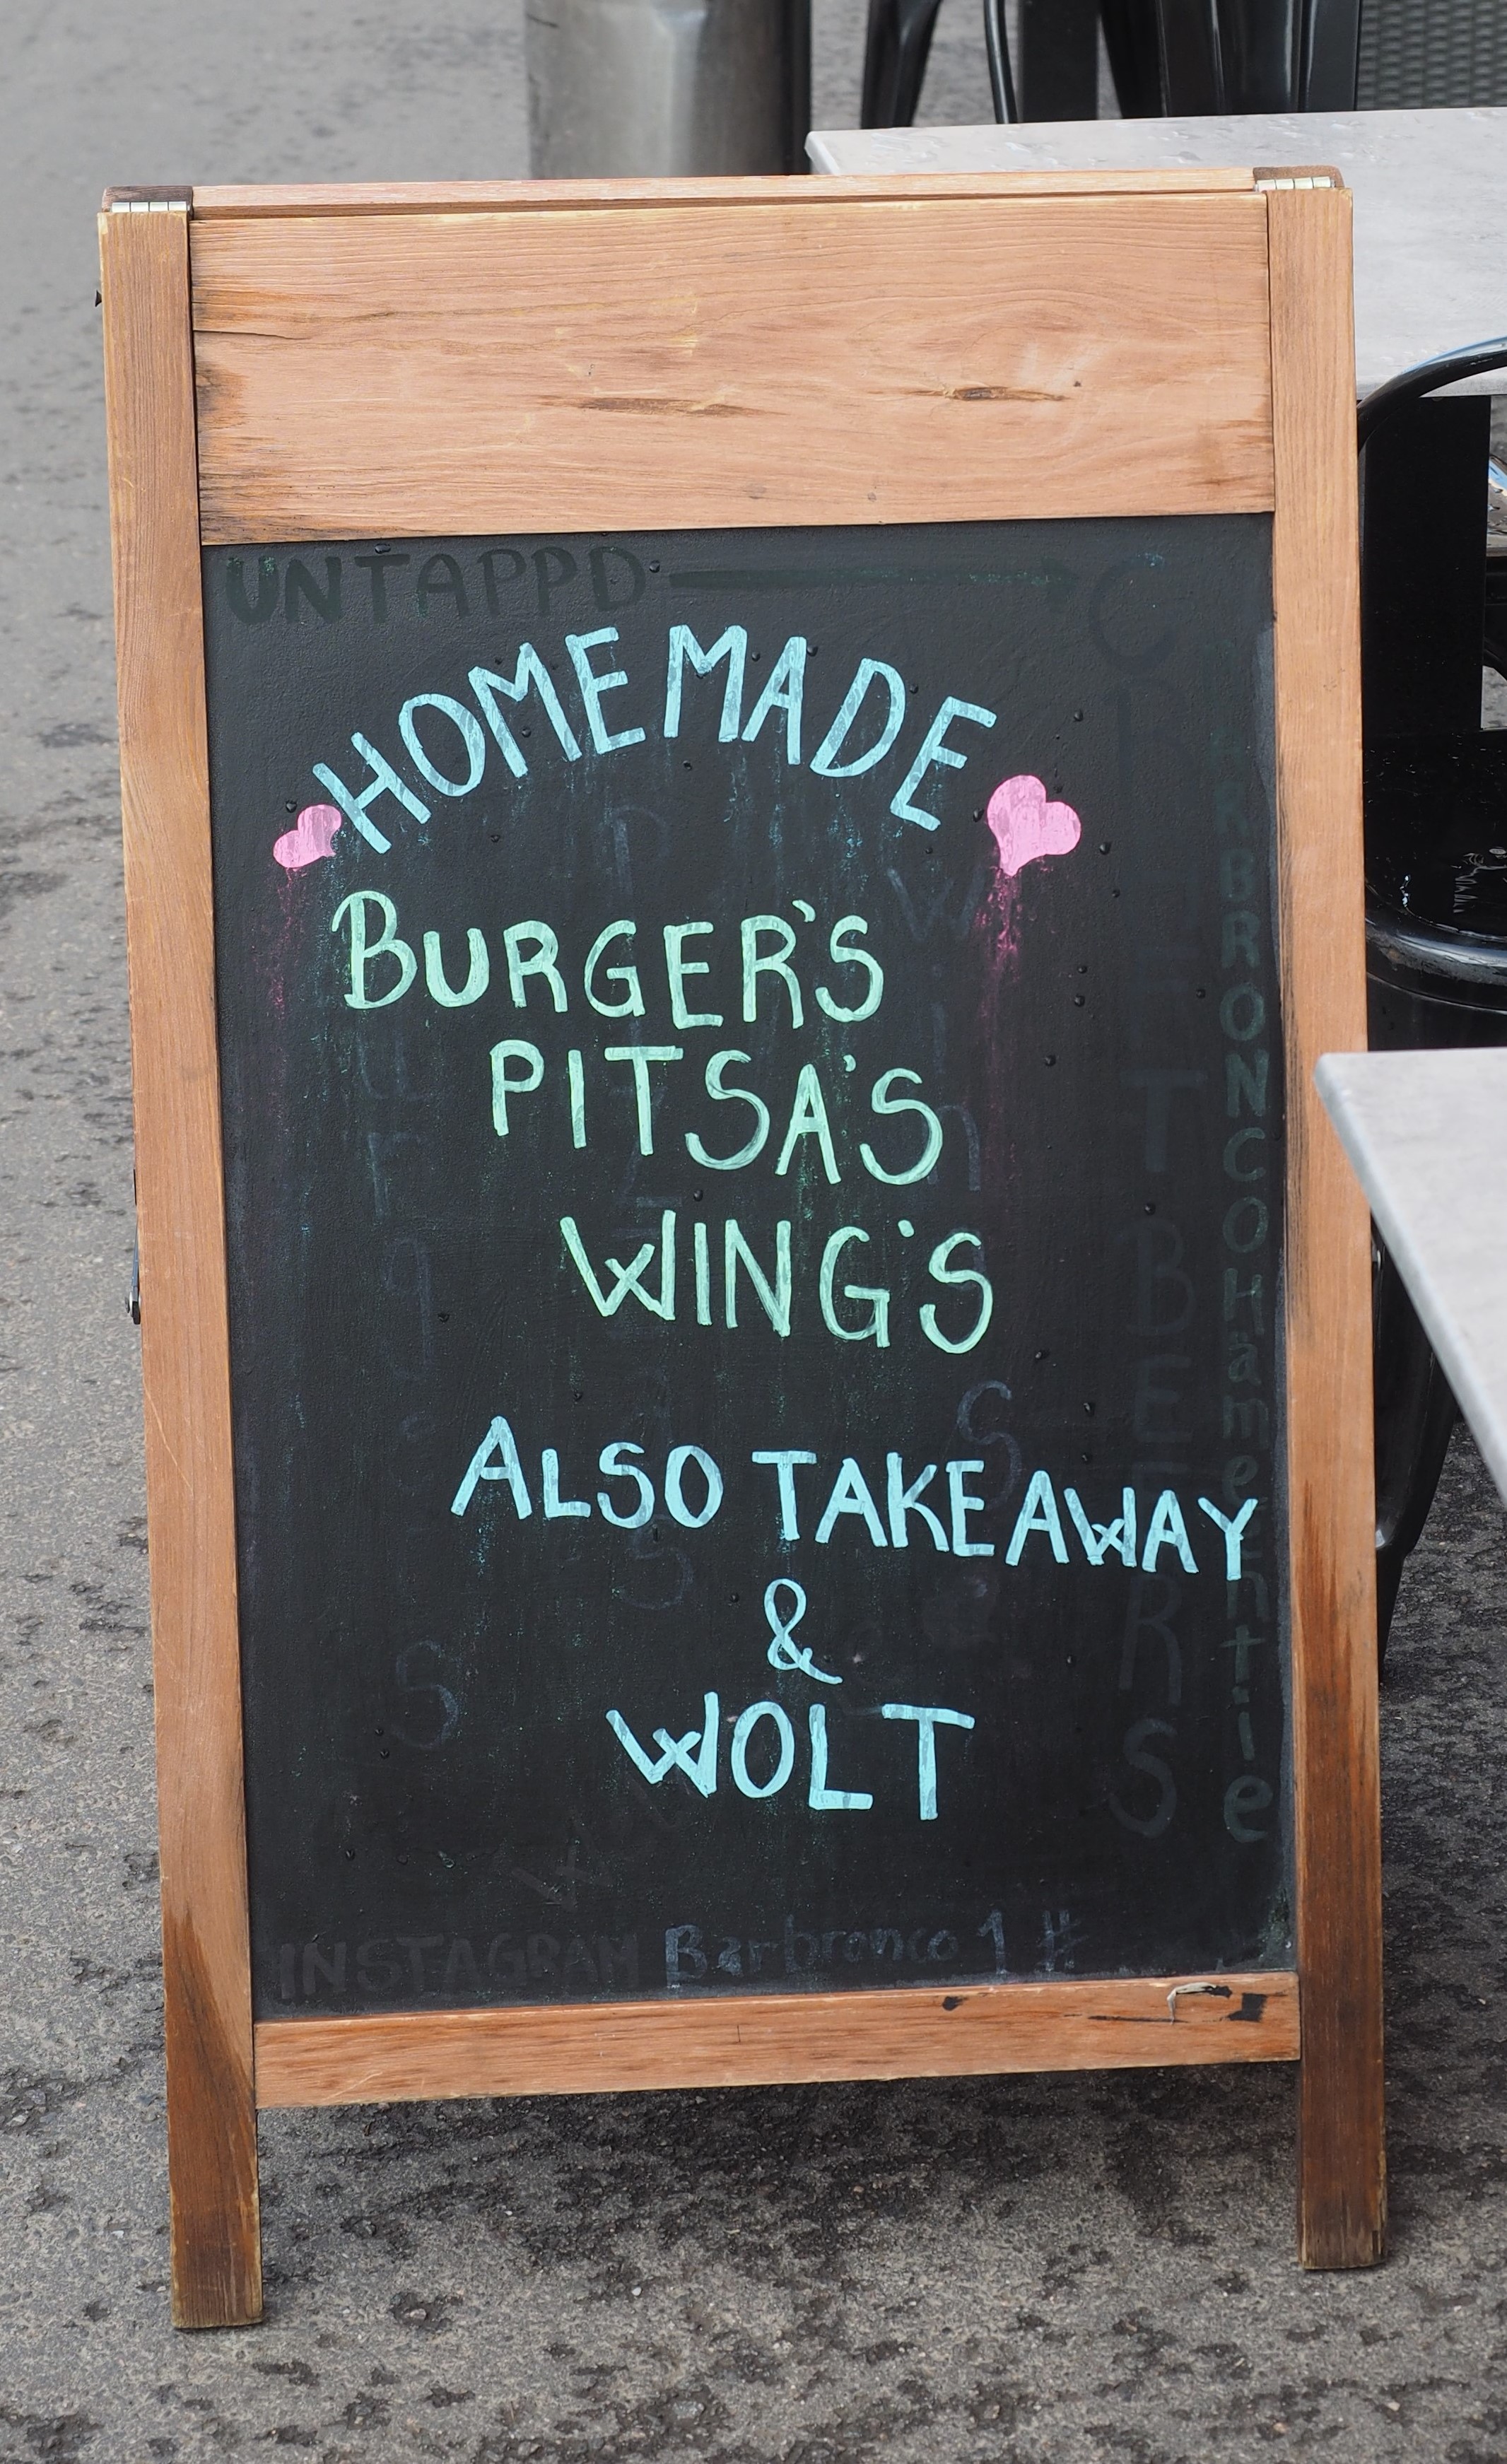 UNTAPPD
HOMEMADE
BURGER'S
PITSA'S
WING'S
ALSO TAKEAWAY
&
WOLT
INSTAGRAM Barbronco 1 #